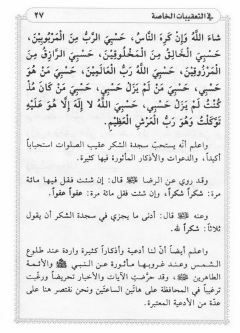 في التعقيبات الخاصة
٢٧
شاءَ اللَّهُ وَإِنْ كَرِهَ النَّاسُ، حَسْبِيَ الرَّبُّ مِنَ الْمَرْبُوبِينَ،
حَسْبِيَ الْخَالِقُ مِنَ الْمَخْلُوقِينَ، حَسْبِيَ الرَّازِقُ مِنَ
الْمَرْزُوقِينَ، حَسْبِيَ اللَّهُ رَبُّ الْعَالَمِينَ، حَسْبِيَ مَنْ هُوَ
حَسْبِي، حَسْبِيَ مَنْ لَمْ يَزَلْ حَسْبِي، حَسْبِيَ مَنْ كَانَ مُذْ
كُنْتُ لَمْ يَزَلْ حَسْبِي، حَسْبِيَ اللَّهُ لا إِلَهَ إِلَّا هُوَ عَلَيْهِ
تَوَكَّلْتُ وَهُوَ رَبُّ الْعَرْشِ الْعَظِيمِ.
واعلم أنّه يستحبّ سجدة الشكر عقيب الصلوات استحباباً
أكيداً، والدعوات والأذكار المأثورة فيها كثيرة.
وقد روي عن الرضا ﷺ قال: إن شئت فقل فيها مائة
مرة: شكراً شكراً، وإن شئت فقل مائة مرة: عفواً عفواً.
وعنه ﷺ قال: أدنى ما يجزي في سجدة الشكر أن يقول
ثلاثاً: شكراً لله.
واعلم أيضاً أنّ لنا أدعية وأذكاراً كثيرة واردة عند طلوع
الشمس وعند غروبها مأثورة عن النبي ﷺ والأئمة
الطاهرين ﷺ، وقد حرّضت الآيات والأخبار تحريضاً ورغّبت
ترغيباً في المحافظة على هاتين الساعتين ونحن نقتصر هنا على
عدّة من الأدعية المعتبرة.